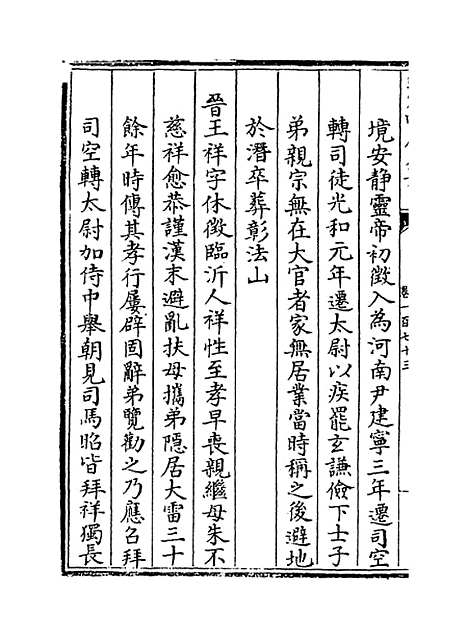 境安静靈帝初徴入為河南尹建寧三年遷司空
轉司徒光和元年遷太尉以疾罷玄謙儉下士子
弟親宗無在大官者家無居業當時稱之後避地
於潛卒葬彰法山
晉王祥字休徴臨沂人祥性至孝早喪親繼母朱不
慈祥愈恭謹漢末避亂扶母攜弟隱居大雷三十
餘年時傳其孝行屢辟固辭弟覽勸之乃應召拜
司空轉太尉加侍中舉朝見司馬昭皆拜祥獨長
卷一百七十三